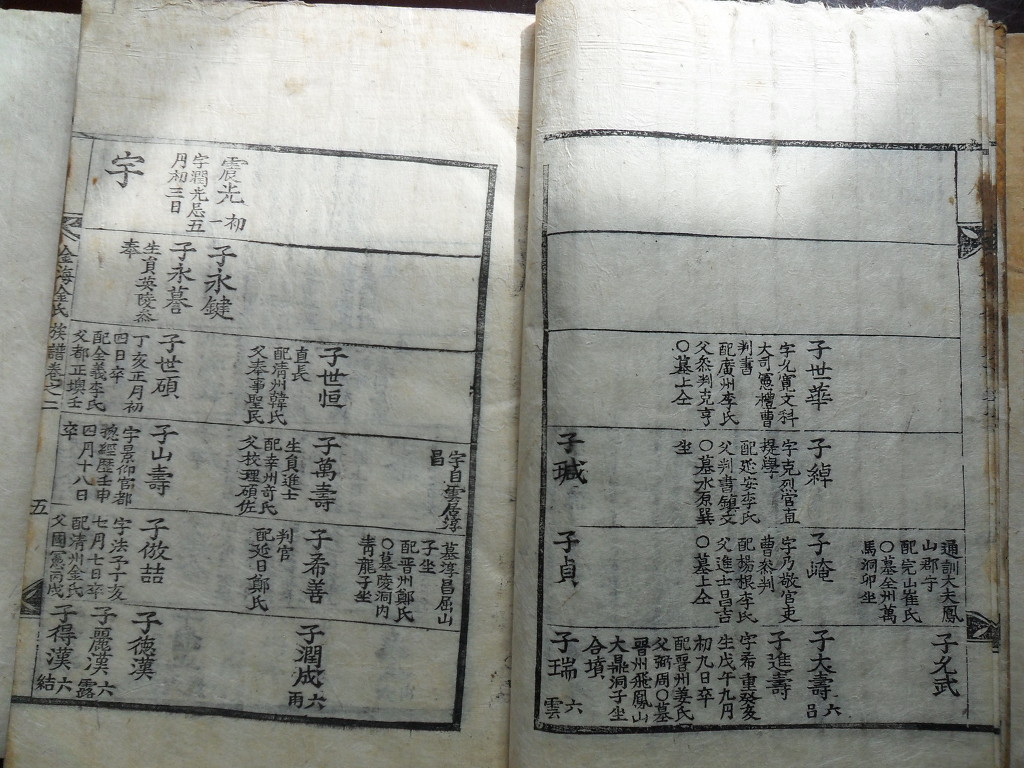 通訓大夫鳳
山郡守
配完山崔氏
○墓全州萬
馬洞卯坐
子世華
字允寬文科
大司憲禮曹
判書
配廣州李氏
父叅判克亨
○墓上仝
子綽
字克烈官直
提學
配延安李氏
父判書
○墓水原巽
坐
子崦
字乃敬官吏
曹叅判
配楊根李氏
父進士昌吉
○墓上仝
子允武
子大壽
六
呂
子進壽
字希重癸亥
生戊午九月
初九日卒
配晋州姜氏
父弼周○墓
晋州飛鳳山
大鼎洞子坐
合墳
子瑊
子貞
子瑞
六
雲
宇
震光
初一
字潤先忌五
月初三日
子永鍵
子永蓍
生員英陵叅
奉
子世恒
直長
配淸州韓氏
父奉事聖民
子世碩
丁亥正月初
四日卒
配全義李氏
父都正
字自雲居淳
昌
子萬壽
生員進士
配幸州奇氏
父校理碩佐
子山壽
字景仰官都
摠經歷壬申
四月十八日
卒
墓淳昌屈山
子坐
配晋州鄭氏
○墓陵洞内
靑龍子坐
子希善
判官
配延日鄭氏
子倣喆
字法予丁亥
七月七日卒
配淸州金氏
父國憲丙戌
子潤成
六
雨
子德漢
子麗漢
六
露
子得漢
六
結
金海金氏族譜卷之二
五